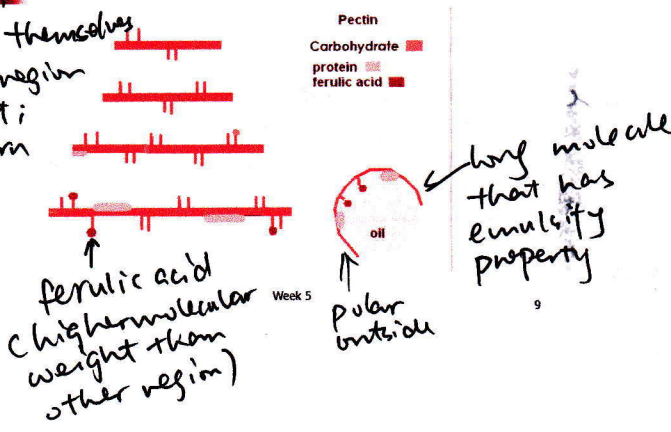 themselves
region
Pectin
Carbohydrate
protein
ferulic acid
long molecule
that has
emulsify
property
oil
ferulic acid
(higher molecular
weight than
other region)
Week 5
polar
outside
9